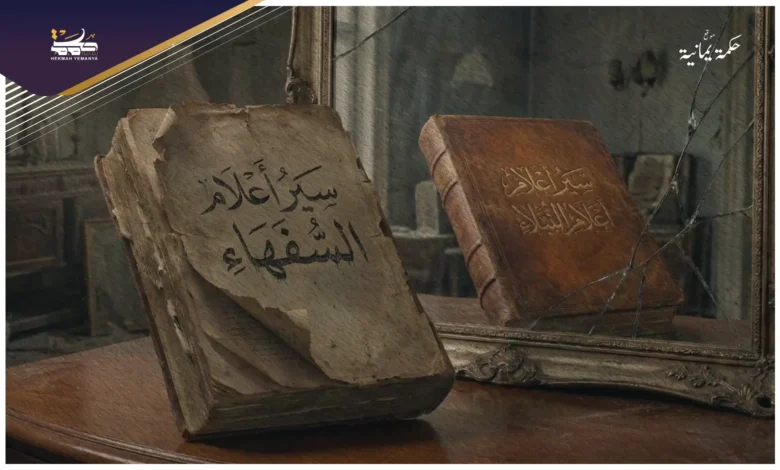 حكمة
HEKMAH YEMANYA
موقع
حكمة يمانية
سِيَرُ أَعْلَام
السُّفَهَاءِ
سير أعلام
أعلام النبلاء